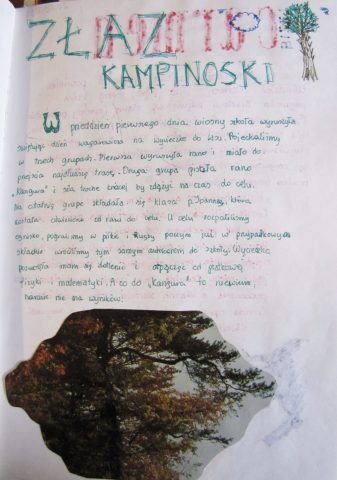 ZŁAZ
KAMPINOSKI
W przeddzień pierwszego dnia wiosny szkoła wyruszyła
świętując dzień wagarowicza na wycieczkę do lasu. Pojechaliśmy
w trzech grupach. Pierwsza wyruszyła rano i miała do
przejścia najdłuższą trasę. Druga grupa pisała rano
"Kangura" i szła trochę krócej by zdążyć na czas do celu.
Na ostatnią grupę składała się klasa p. Joanny, która
została dowieziona od razu do celu. U celu rozpaliliśmy
ognisko, pograliśmy w piłkę i Rugby poczym już w przypadkowych
składzie wróciliśmy tym samym autokarem do szkoły. Wycieczka
pozwoliła nam się dotlenić i odpocząć od
fizyki i matematyki. A co do "Kangura" to niewiem,
narazie nie ma wyników.